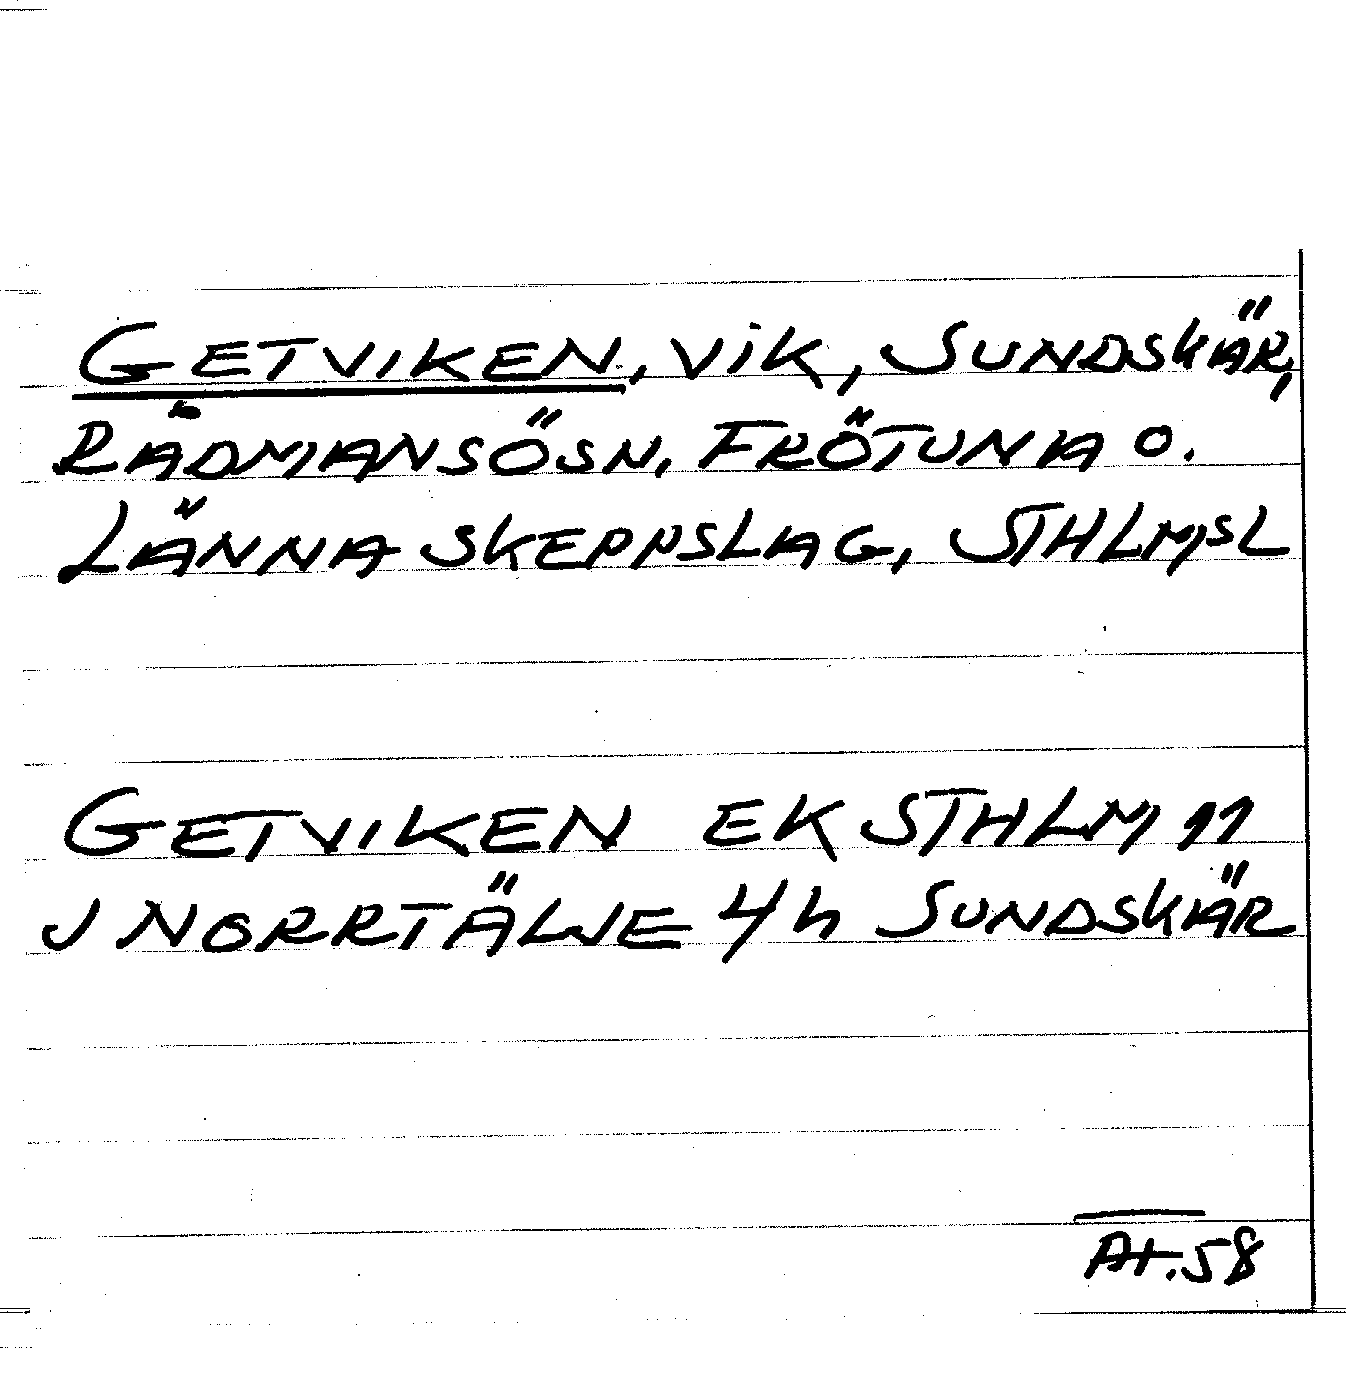 GETVIKEN, VIK, SUNDSKÄR,
RÅDMANSÖSN, FRÖTUNA O.
LÄNNA SKEPPSLAG, STHLMSL
GETVIKEN EK STHLM 11
J NORRTÄLJE 4h SUNDSKÄR
At.58